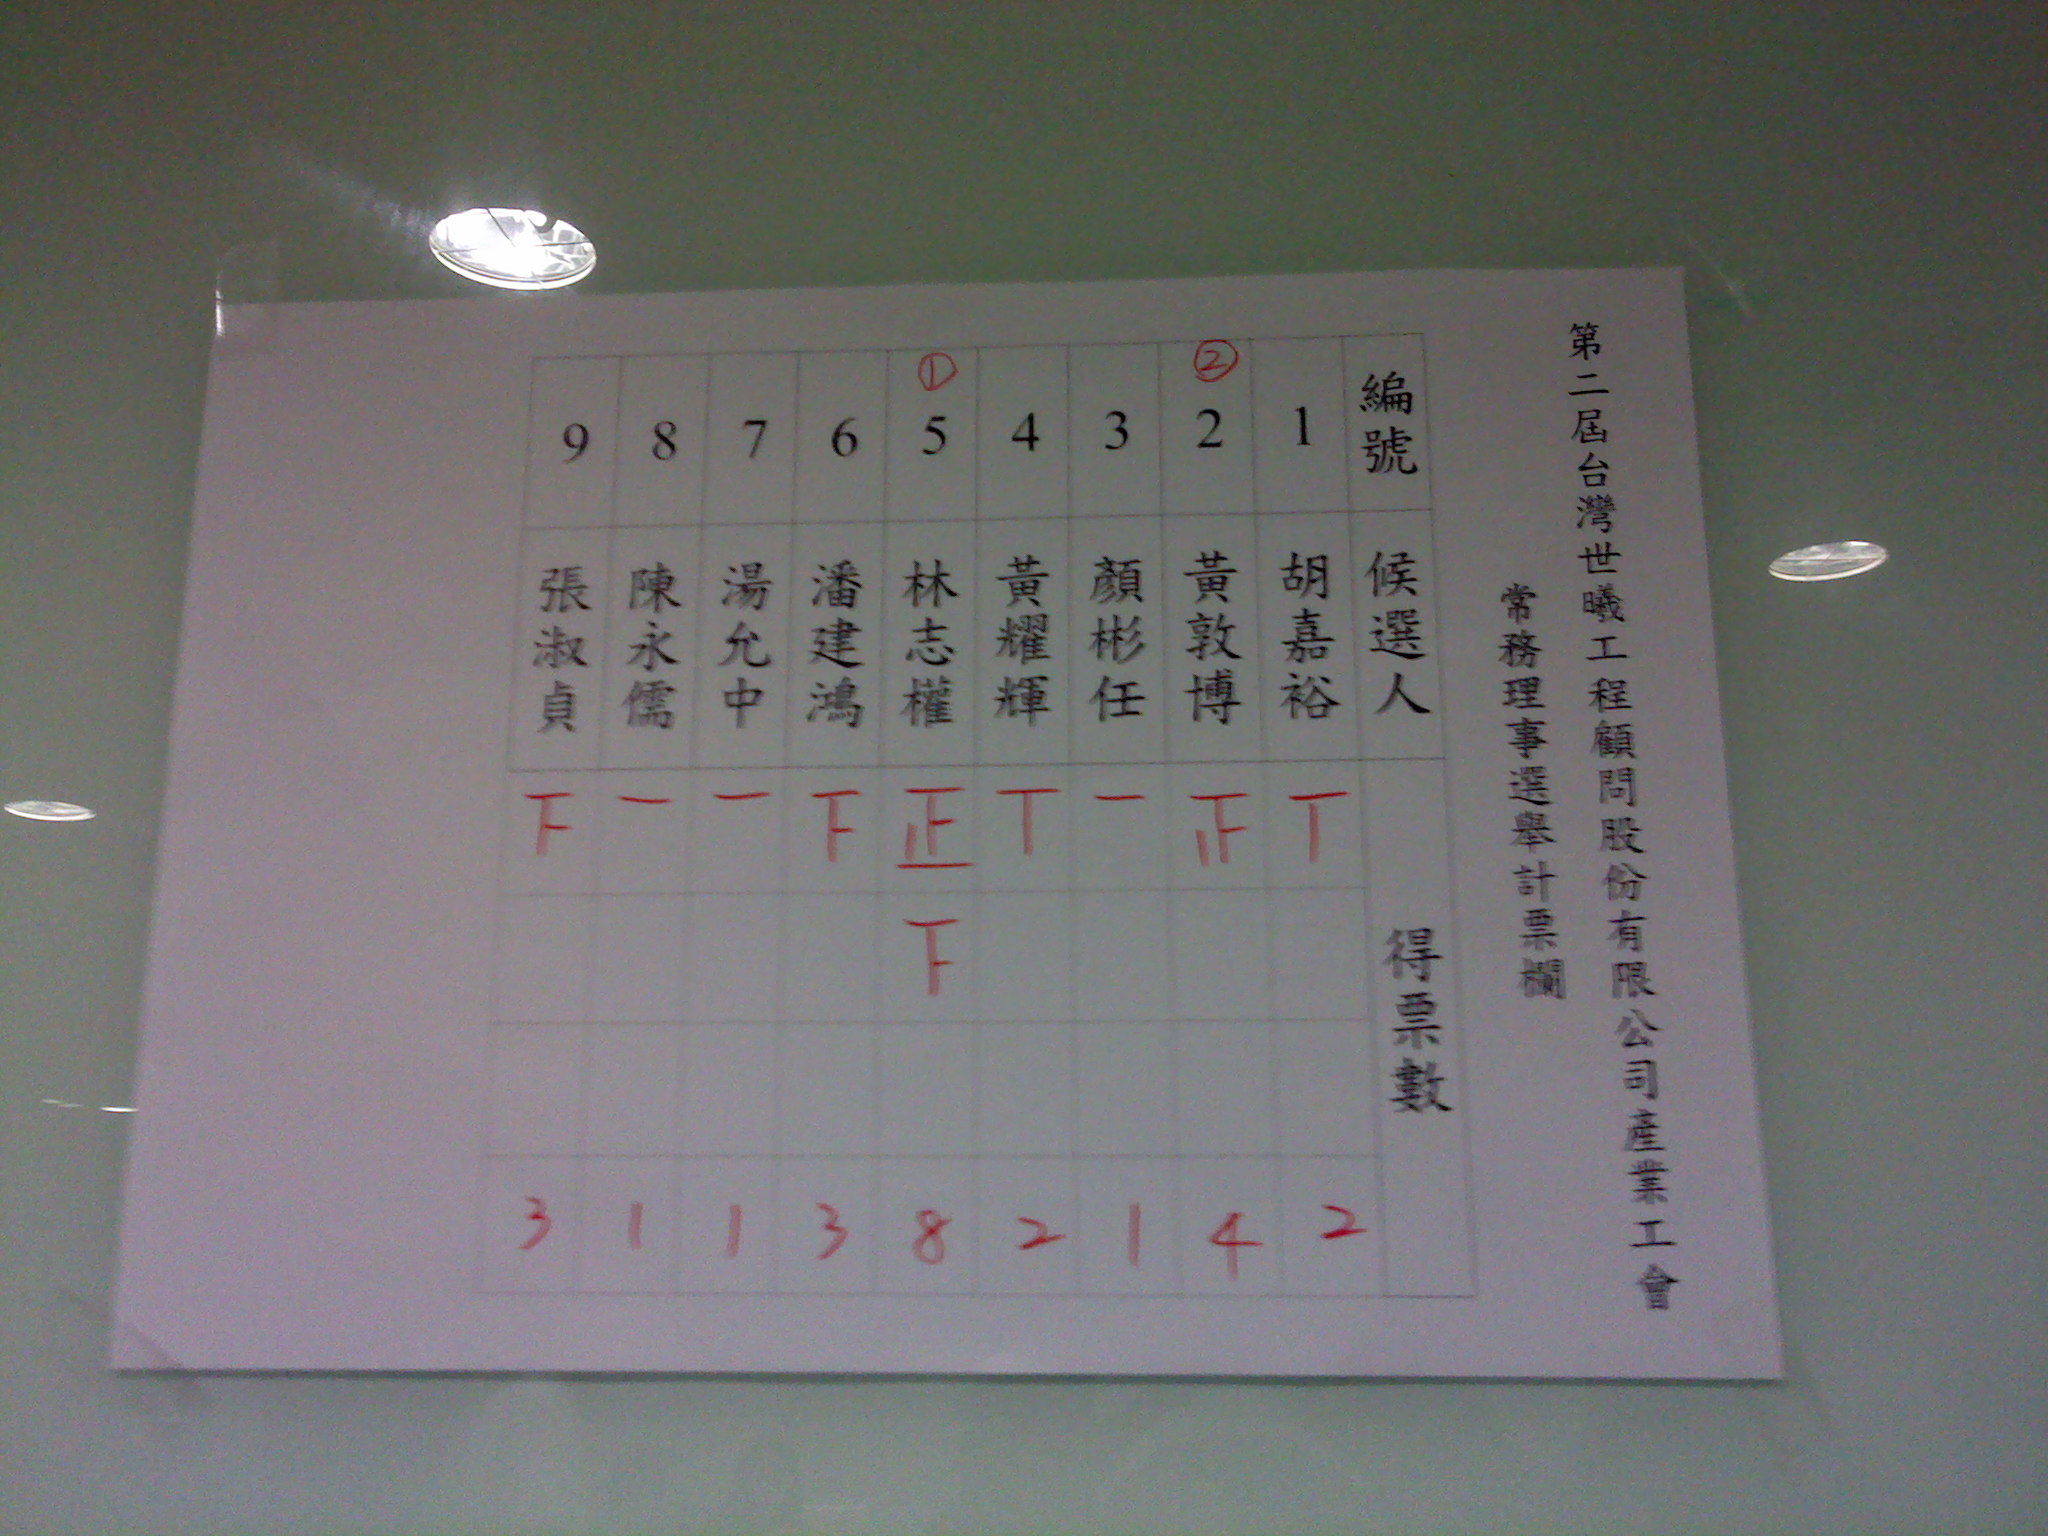 第二屆台灣世曦工程顧問股份有限公司產業工會
常務理事選舉計票欄
編號 候選人 得票數
1 胡嘉裕 丅 2
② 2 黃敦博 止 4
3 顏彬任 一 1
4 黃耀輝 丅 2
① 5 林志權 正 下 8
6 潘建鴻 下 3
7 湯允中 一 1
8 陳永儒 一 1
9 張淑貞 下 3